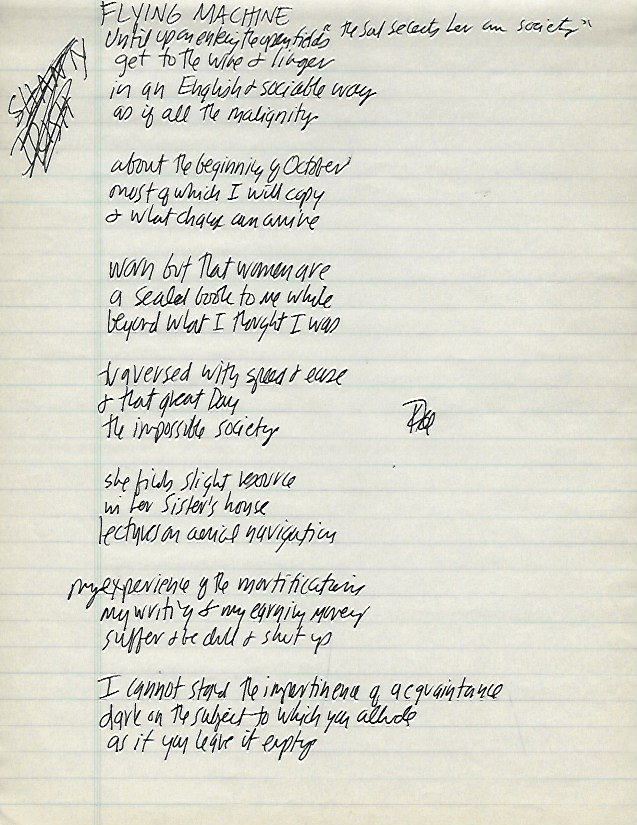 FLYING MACHINE
Until upon entry the open fields "the soul selects her own society"
get to the wine & linger
in an English & sociable way
as if all the malignity
about the beginning of October
most of which I will copy
& what change can arrive
worn but that women are
a sealed book to me while
beyond what I thought I was
traversed with speed & ease
& that great Day
the impossible society
she finds slight resource
in her Sister's house
lectures on aerial navigation
my experience of the mortifications
my writing & my earning money
suffer & be dull & shut up
I cannot stand the impertinence of acquaintance
dark on the subject to which you allude
as if you leave it empty